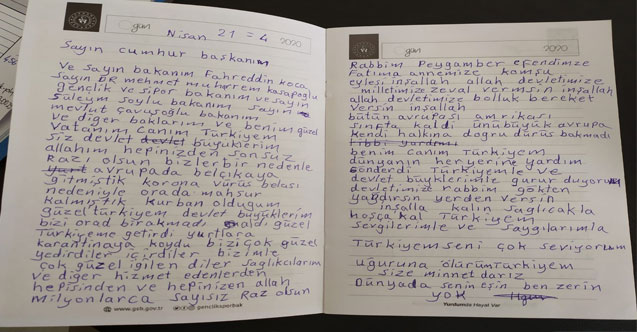 gün
Nisan 21 = 4
2020
Sayın cumhur başkanım
Ve sayın bakanım Fahreddin koca
Sayın DR mehmet muharrem kasapoğlu
gençlik ve sipor bakanım ve sayın
Süleym soylu bakanım sayın
mevlüt çavuşoğlu bakanım
Ve diğer baklarım ve benim güzel
Vatanım Canım Türkiyem
siz devlet devlet büyüklerim
allahım hepinizden sonsuz
Razı olsun bizler bir nedenle
yurt avrupada belçikaya
gitmiştik korona vürüs belası
nedeniyle orada mahsur
kalmıştık kurban olduğum
güzel türkiyem devlet büyüklerim
bizi orad bırakmadı aldı güzel
Türkiyeme getirdi yurtlara
karantinaya koydu bizi çok güzel
yedirdiler içirdiler bizimle
çok güzel igilen diler sağlıkcılarım
ve diğer hizmet edenlerden
hepisinden ve hepinizen allah
milyonlarca sayısız Raz olsun
www.gsb.gov.tr
gencliksporbak
gün
2020
Rabbim Peygamber efendimze
fatıma annemize komşu
eylesi inşallah allah devletimize
milletimize zeval vermsin inşallah
allah devletimize bolluk bereket
Versin insallah
bütün avrupası amrikası
sınfta kaldı ünübüyük avrupa
kendi halkına doğru dürüs bakmadı
Tıbbi Yardımı
benim canım Türkiyem
dünyanın heryerine yardım
gönderdi Türkiyemle ve
devlet büyklerimle gurur duyoruz
devletimize rabbim gökten
yağdırsın yerden versin
insalla kalın Sağlıcakla
hoşça kal Türkiyem
sevgilerimle ve saygılarımla
Türkiyem seni çok seviyorum
uğuruna ölürüm Türkiyem
size minnetdarız
Dünyada senin eşin benzerin
yok
Yurdumuzda Hayat Var